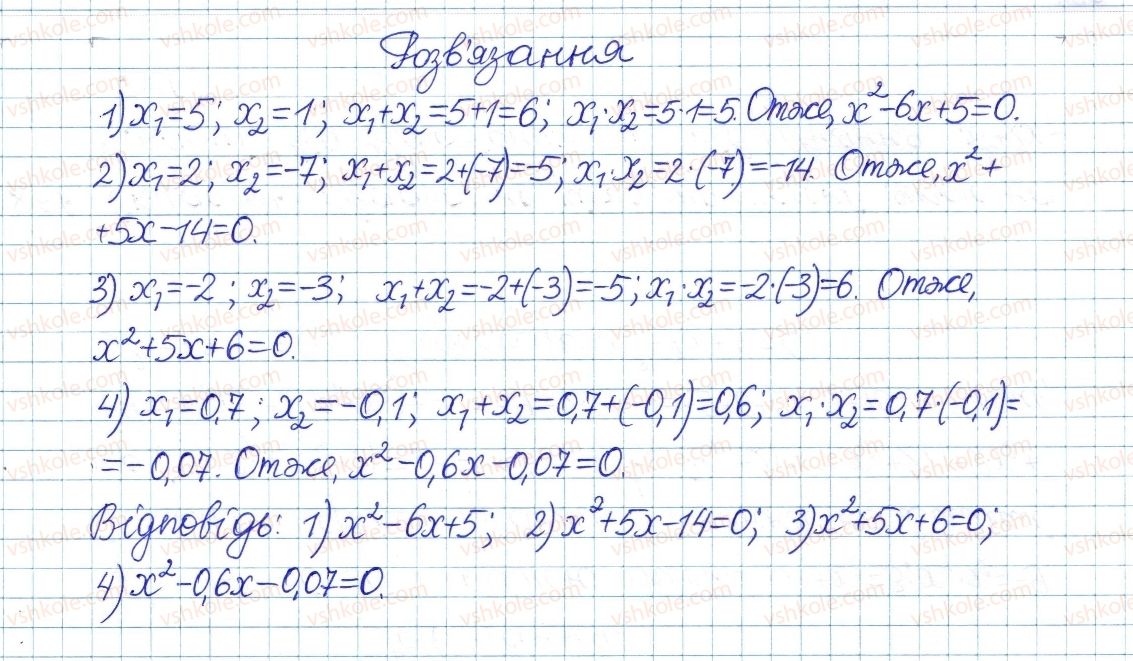 Розв'язання
1) x₁=5; x₂=1; x₁+x₂=5+1=6; x₁·x₂=5·1=5. Отже, x²-6x+5=0.
2) x₁=2; x₂=-7; x₁+x₂=2+(-7)=-5; x₁·x₂=2·(-7)=-14. Отже, x²+
+5x-14=0.
3) x₁=-2; x₂=-3; x₁+x₂=-2+(-3)=-5; x₁·x₂=-2·(-3)=6. Отже,
x²+5x+6=0.
4) x₁=0,7; x₂=-0,1; x₁+x₂=0,7+(-0,1)=0,6; x₁·x₂=0,7·(-0,1)=
=-0,07. Отже, x²-0,6x-0,07=0.
Відповідь: 1) x²-6x+5; 2) x²+5x-14=0; 3) x²+5x+6=0;
4) x²-0,6x-0,07=0.